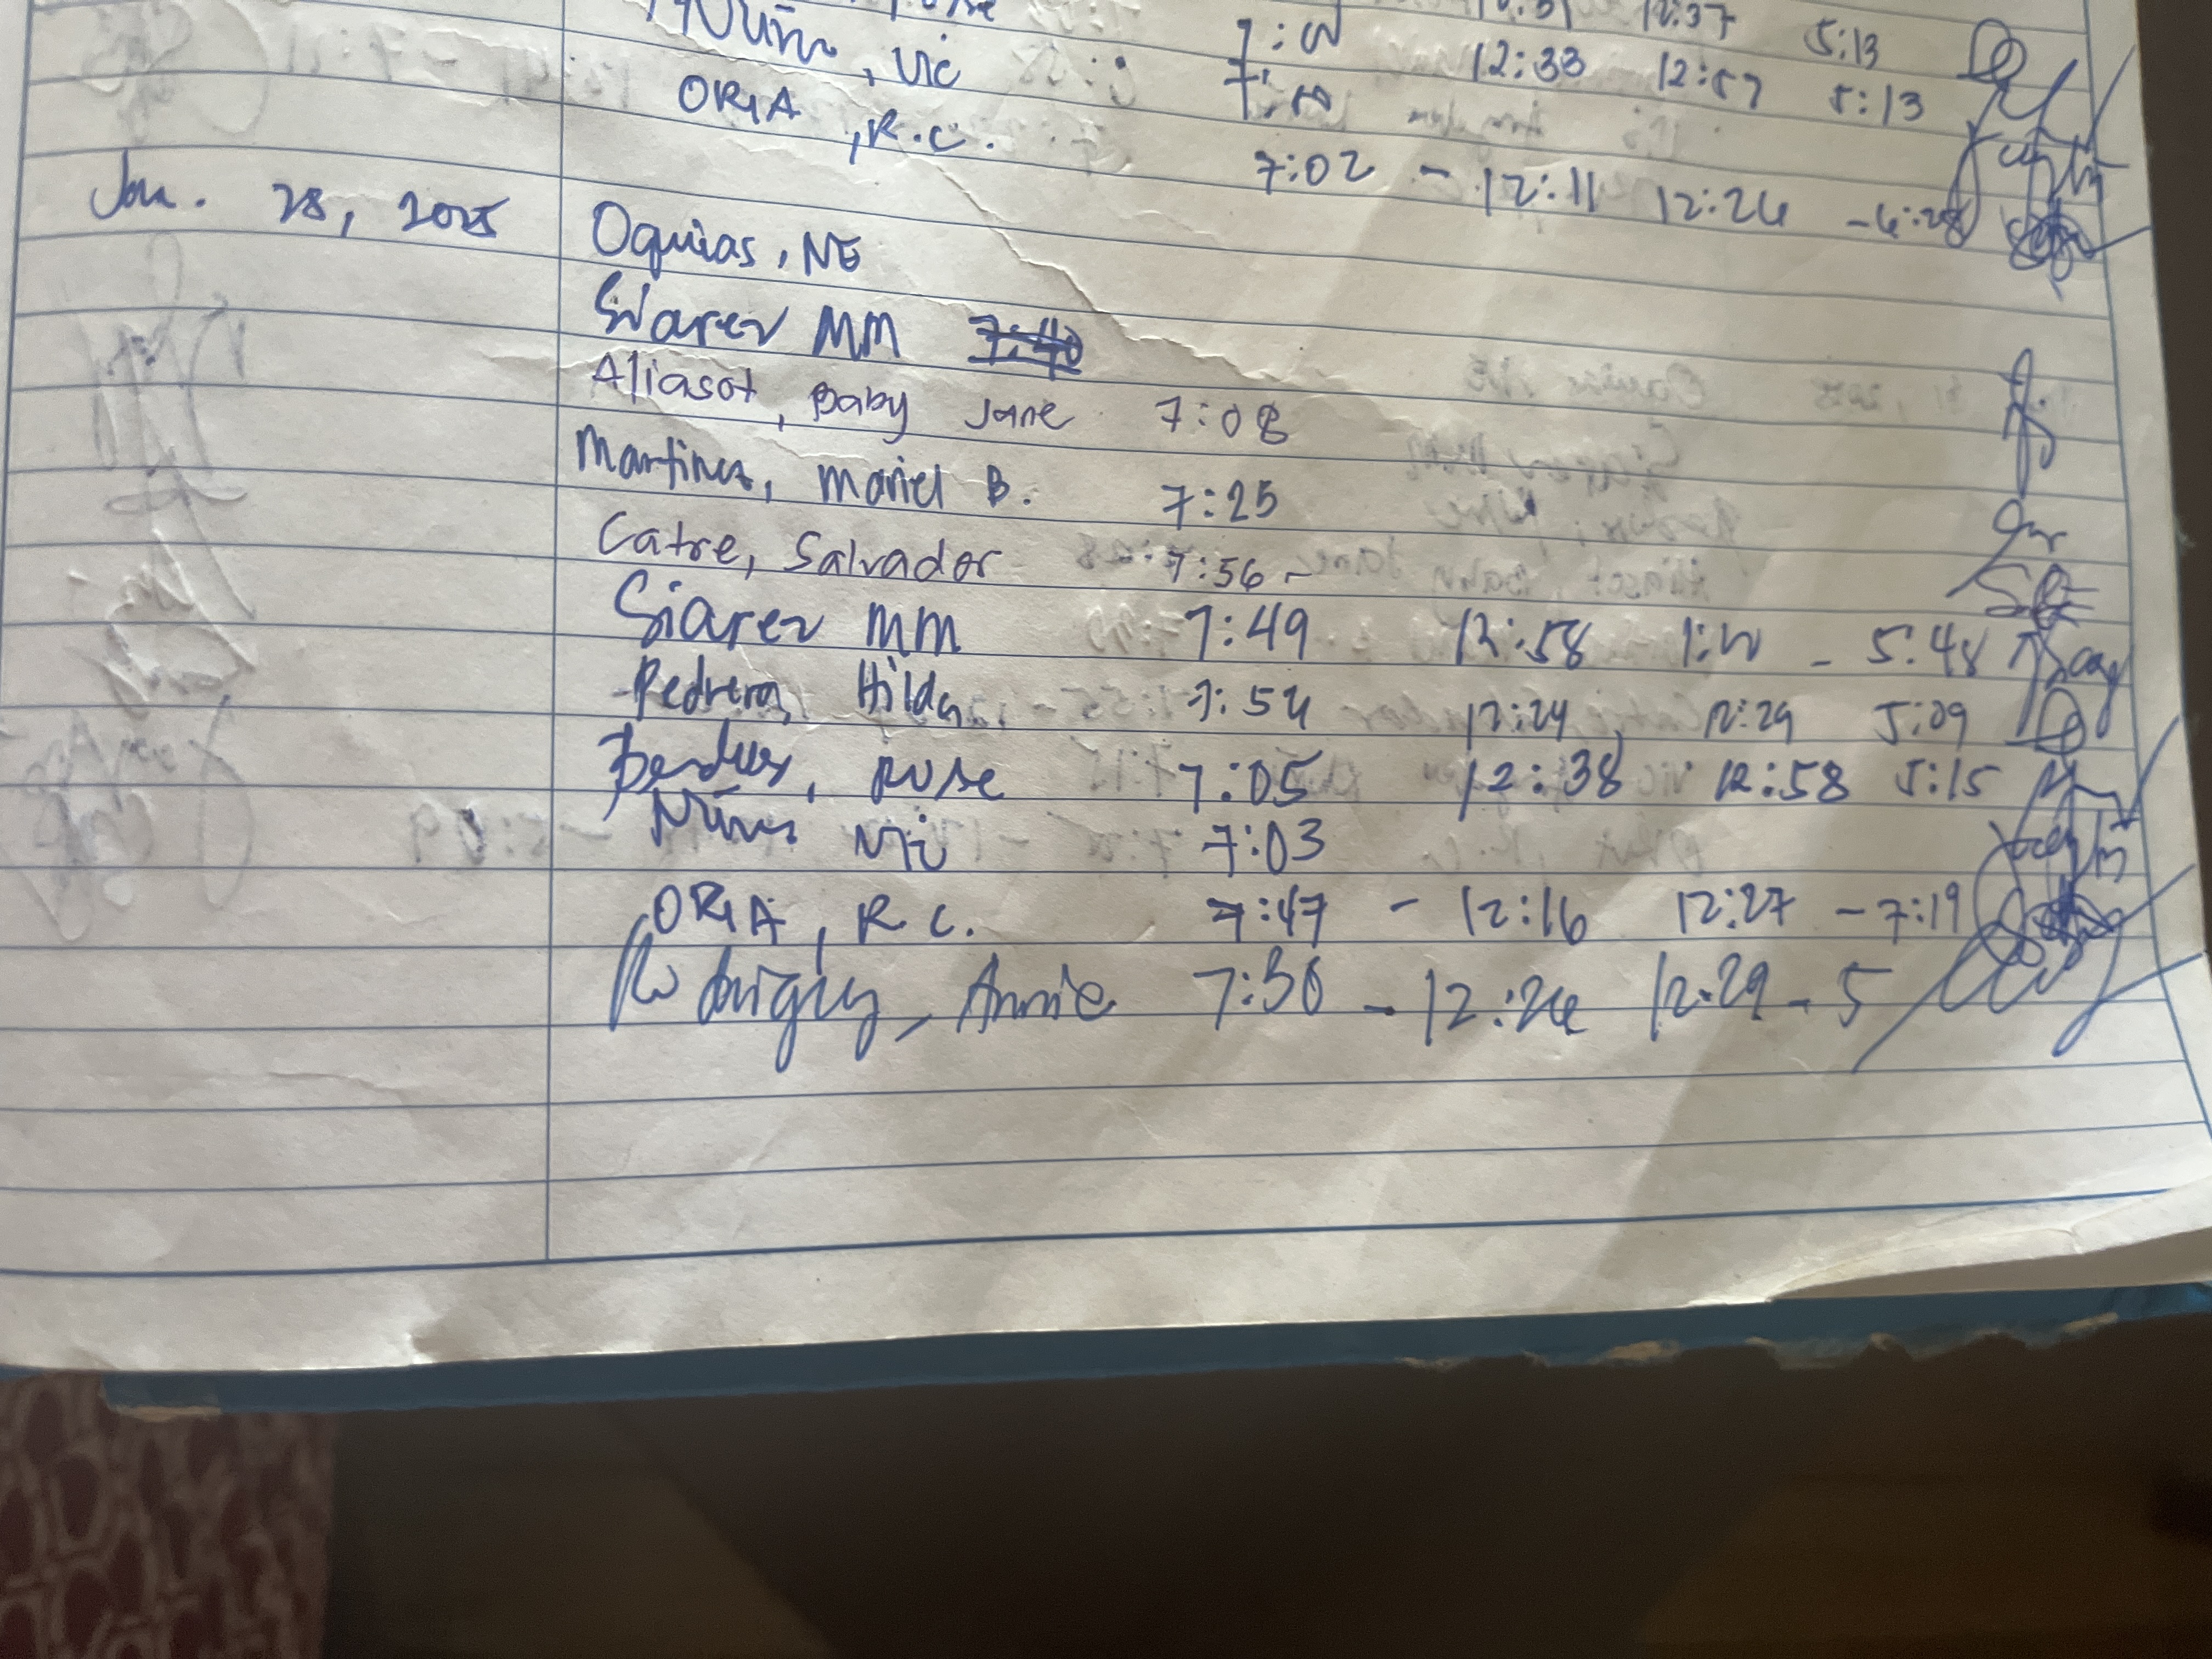 12:37 5:13
Niño, Vic 12:33 12:57 5:13
ORIA, R.C. 7:02 - 12:11 12:24 -
Jan. 28, 2025 Oquias, NE
Siarez MM 7:40
Aliasot, Baby Jane 7:08
Martinez, Mariel B. 7:25
Catre, Salvador 7:56 -
Siarez MM 7:49 12:58 - 5:48
Pedrera, Hilda 7:54 12:24 12:29 5:09
Rose 7:05 12:38 12:58 5:15
Niño 7:03
ORIA, R.C. 7:47 - 12:16 12:27 - 7:19
Annie 7:30 - 12:24 12:29 - 5